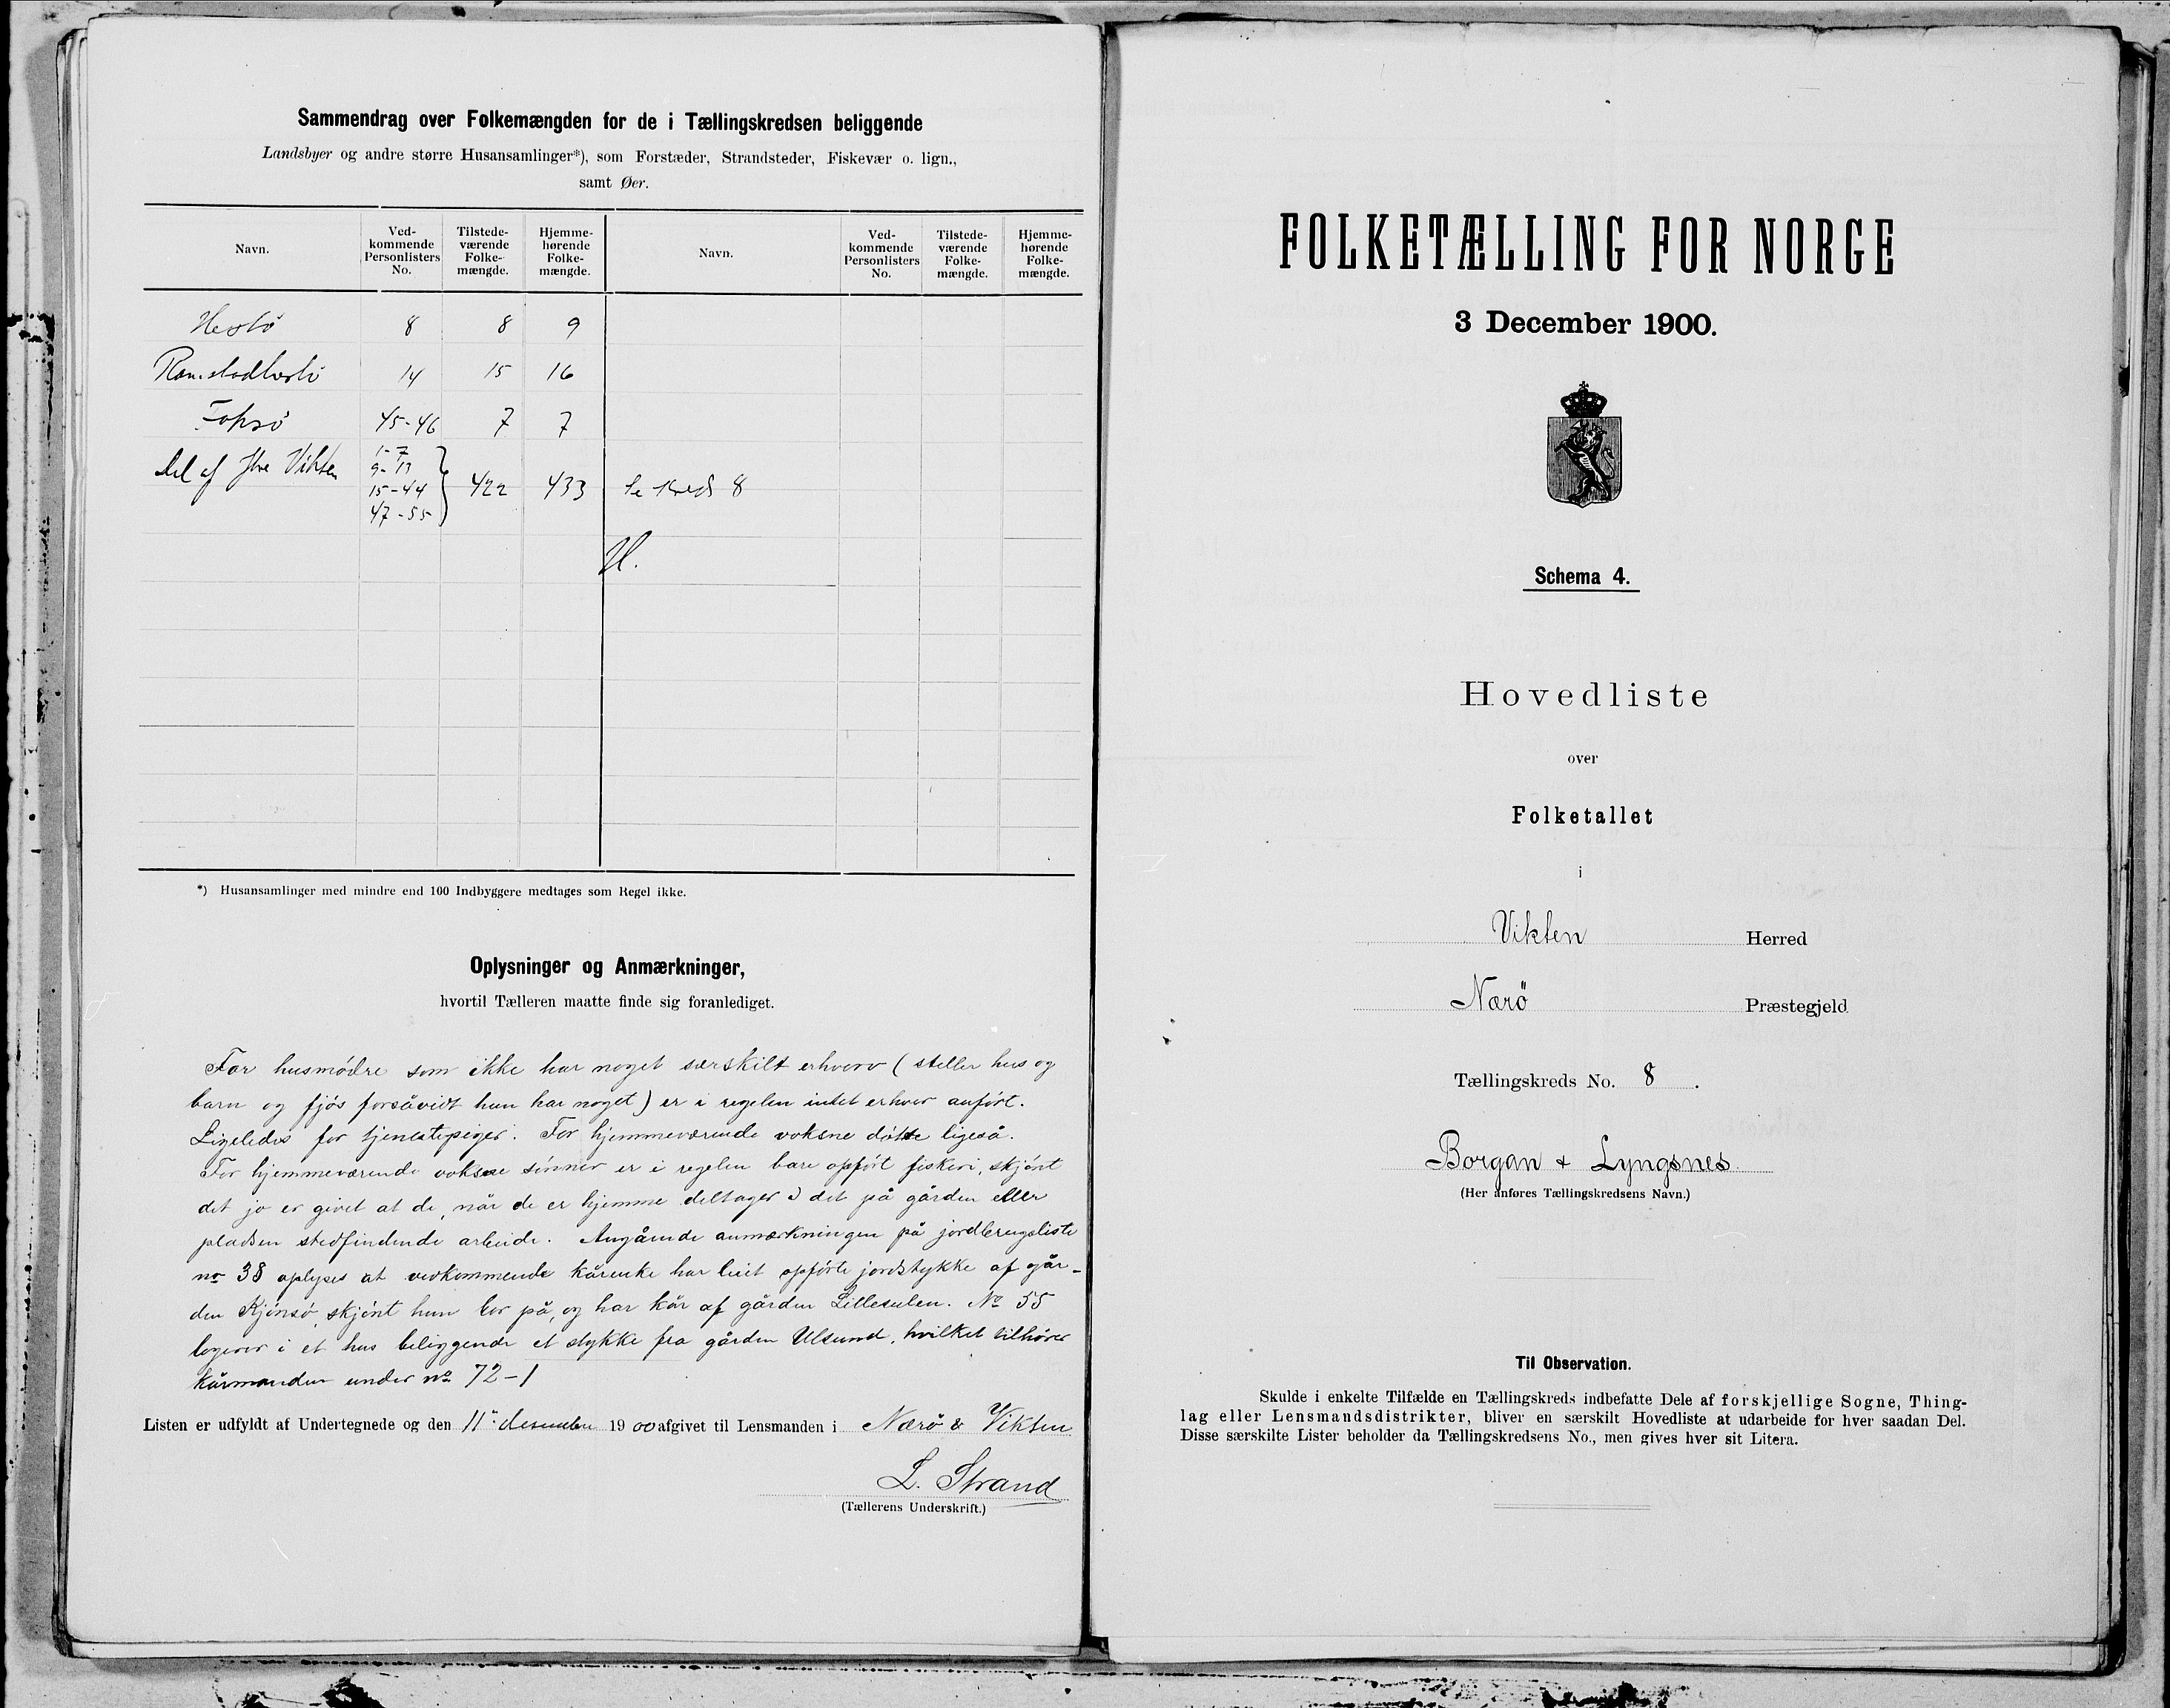 Sammendrag over Folkemængden for de i Tællingskredsen beliggende
Landsbyer og andre større Husansamlinger*), som Forstæder, Strandsteder, Fiskevær o. lign.,
samt Øer.
Navn. Ved-kommende Personlisters No. Tilstede-værende Folke-mængde. Hjemme-hørende Folke-mængde. Navn. Ved-kommende Personlisters No. Tilstede-værende Folke-mængde. Hjemme-hørende Folke-mængde.
Hestö 8 8 9
14 15 16
45-46 7 7
Del af Vikten 1-7
9-13
15-44 422 433 Se Kreds 8
47-55
*) Husansamlinger med mindre end 100 Indbyggere medtages som Regel ikke.
Oplysninger og Anmærkninger,
hvortil Tælleren maatte finde sig foranlediget.
For husmødre som ikke har noget særskilt erhverv (steller hus og
barn og fjøs forsåvidt hun har noget) er i regelen intet erhver anført.
Ligeledes for tjenestepiger. For hjemmeværende voksne døtte ligeså.
For hjemmeværende voksne sønner er i regelen bare opført fiskeri, skjønt
det jo er givet at de, når de er hjemme deltager i det på gården eller
pladsen stedfindende arbeide. Angående anmærkningen på jordbrugsliste
no 38 oplyses at vedkommende kårenke har leiet opførte jordstykke af går-
den Kjønsø, skjønt hun bor på, og har kår af gården Lillesulen. No 55
logerer i et hus beliggende et stykke fra gården Ulsund, hvilket tilhører
kårmanden under no 72-1
Listen er udfyldt af Undertegnede og den 11te desember 1900 afgivet til Lensmanden i Nærö & Vikten
L. Strand
(Tællerens Underskrift.)
FOLKETÆLLING FOR NORGE
3 December 1900.
Schema 4.
Hovedliste
over
Folketallet
i
Vikten Herred
Nærö Præstegjeld
Tællingskreds No. 8.
Borgan + Lyngsnes.
(Her anføres Tællingskredsens Navn.)
Til Observation.
Skulde i enkelte Tilfælde en Tællingskreds indbefatte Dele af forskjellige Sogne, Thing-
lag eller Lensmandsdistrikter, bliver en særskilt Hovedliste at udarbeide for hver saadan Del.
Disse særskilte Lister beholder da Tællingskredsens No., men gives hver sit Litera.